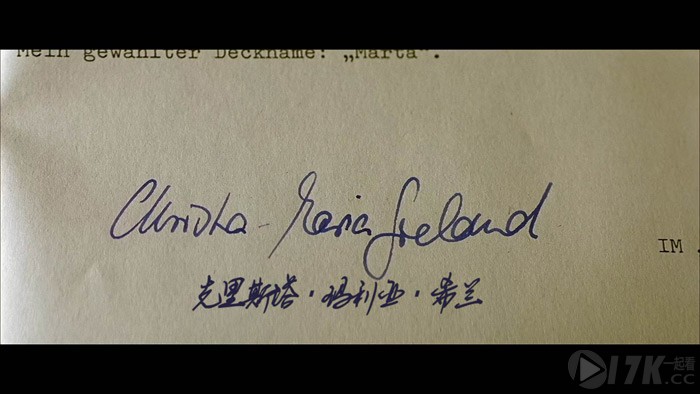 Mein gewählter Deckname: „Marta“.
Christa-Maria Sieland
IM
克里斯塔·玛利亚·希兰
17K一起看
.cc